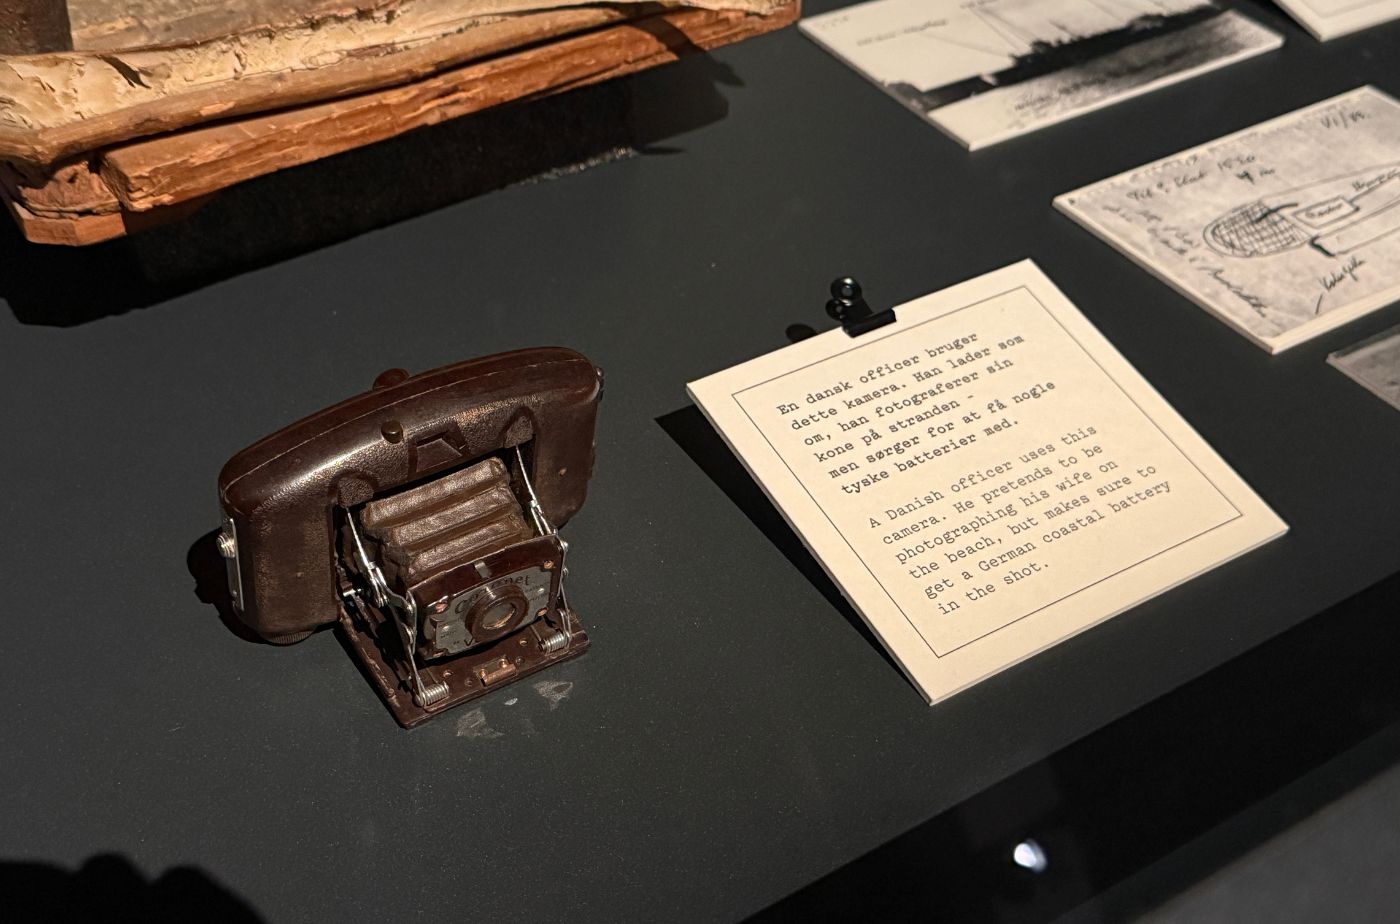 En dansk officer bruger
dette kamera. Han lader som
om, han fotograferer sin
kone på stranden -
men sørger for at få nogle
tyske batterier med.
A Danish officer uses this
camera. He pretends to be
photographing his wife on
the beach, but makes sure to
get a German coastal battery
in the shot.